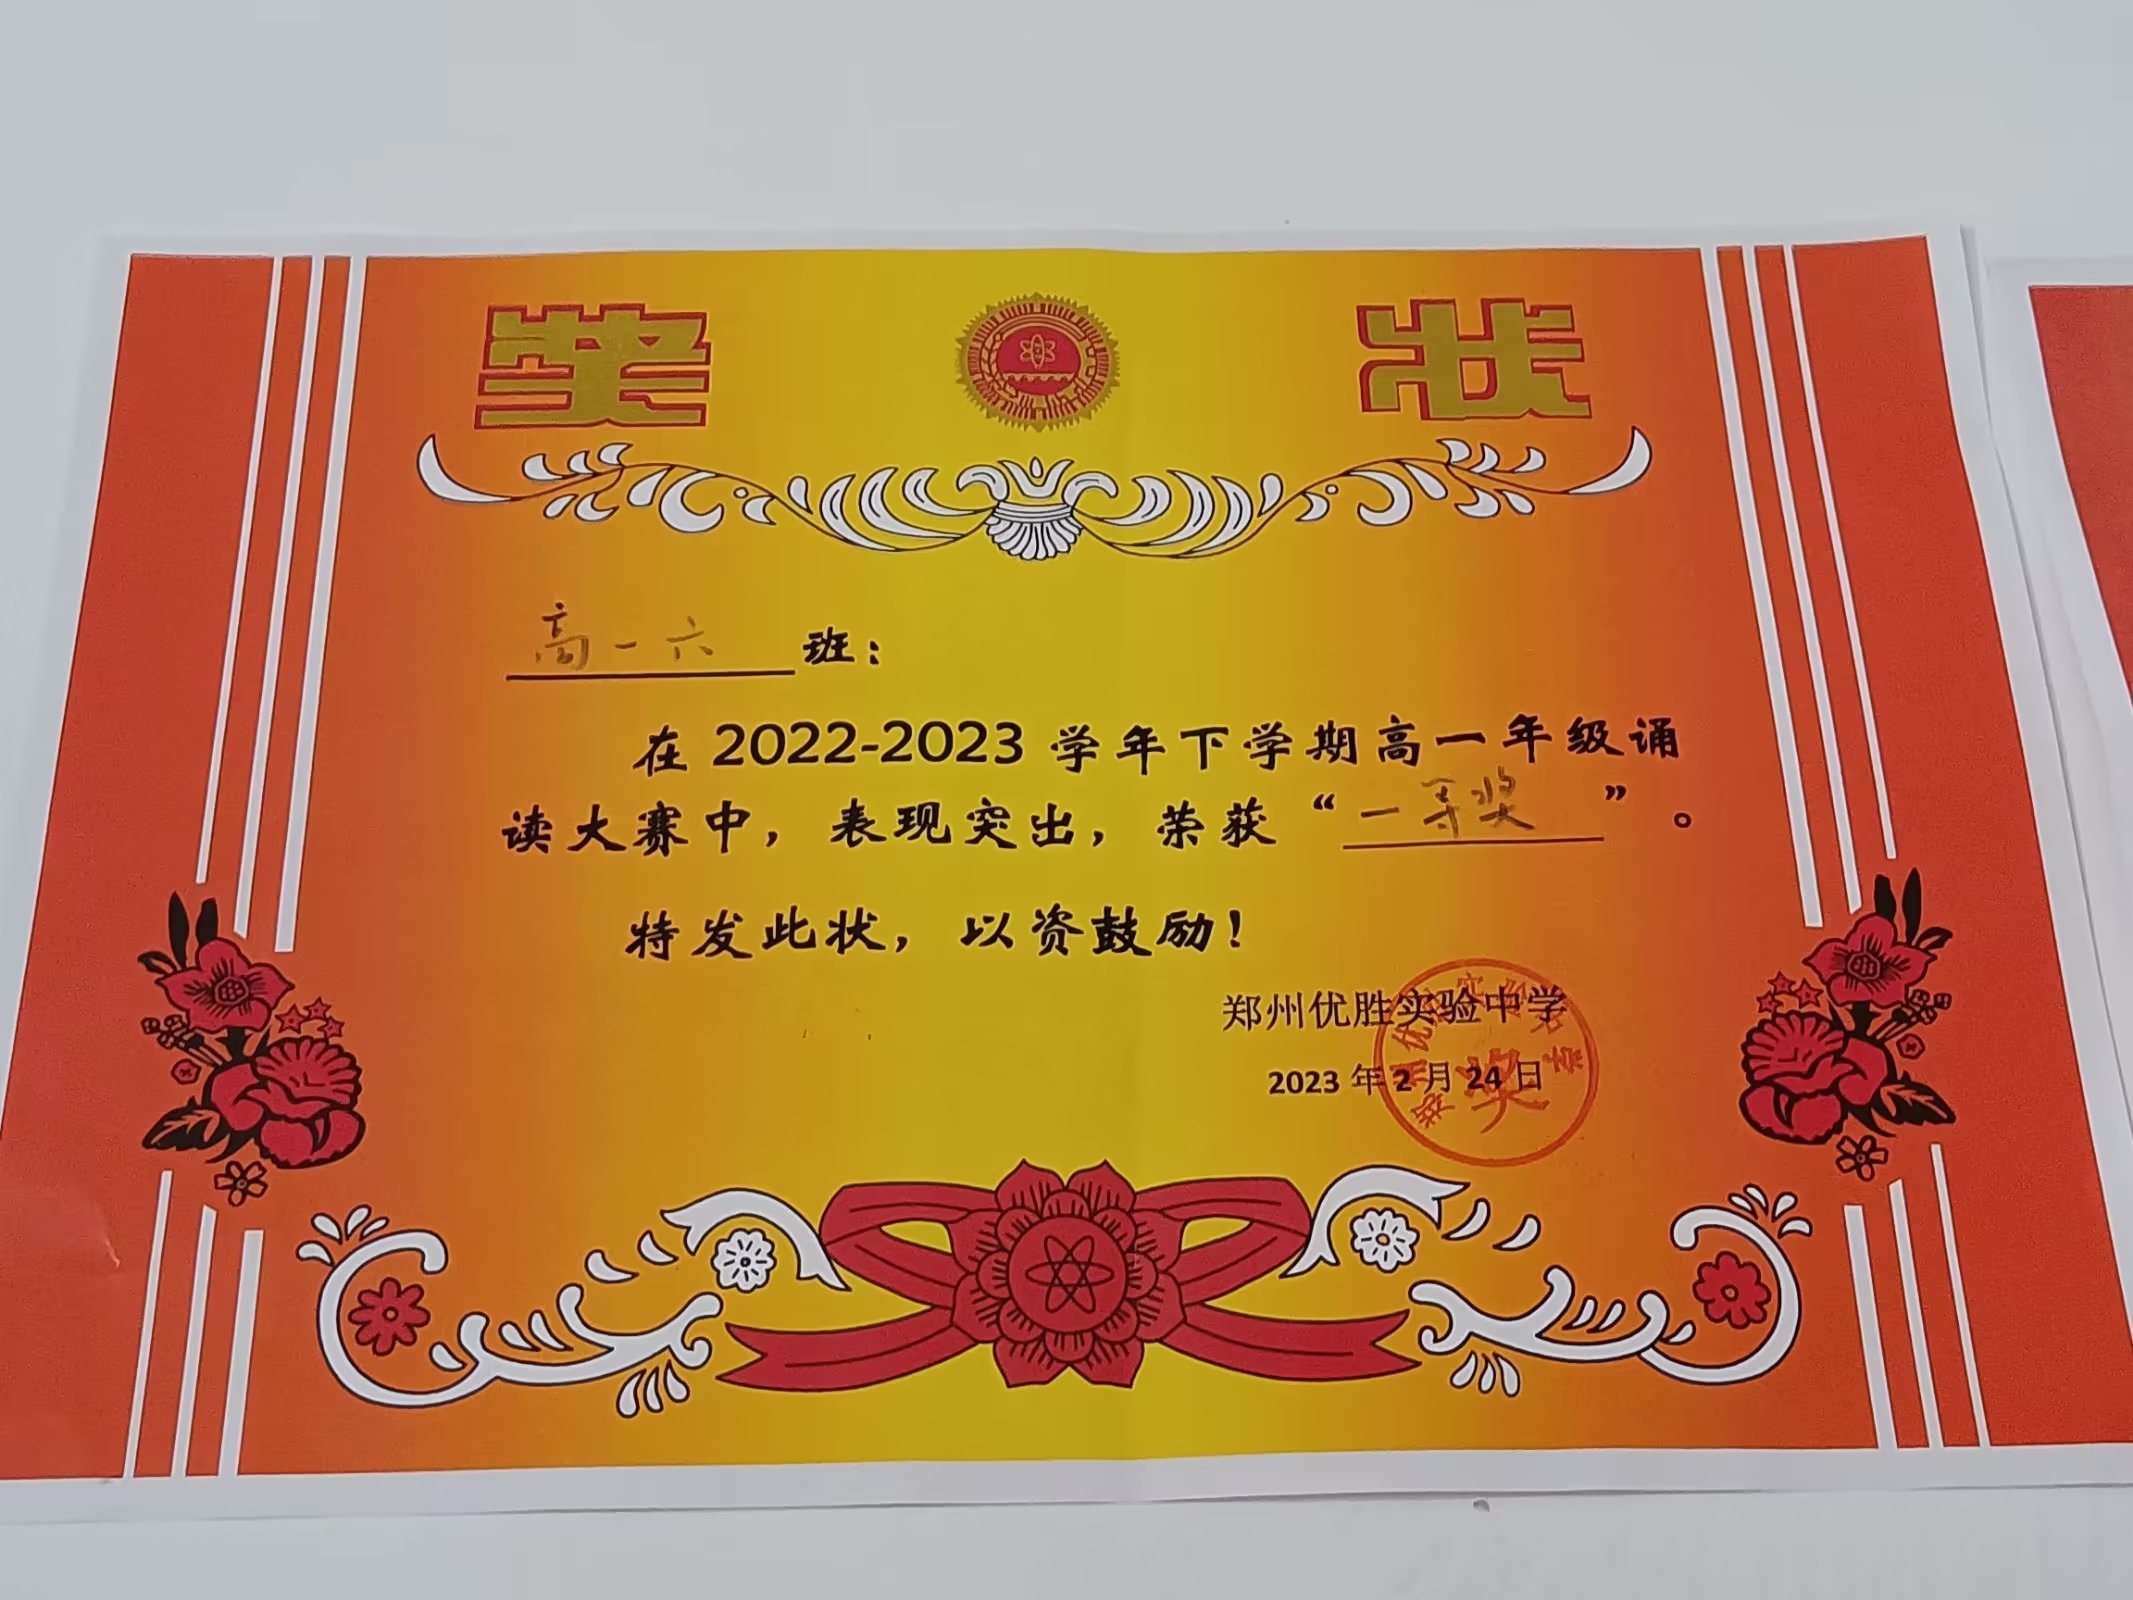 奖状
高一六班：
在 2022-2023 学年下学期高一年级诵
读大赛中，表现突出，荣获“一等奖”。
特发此状，以资鼓励！
郑州优胜实验中学
2023 年 2 月 24 日
奖